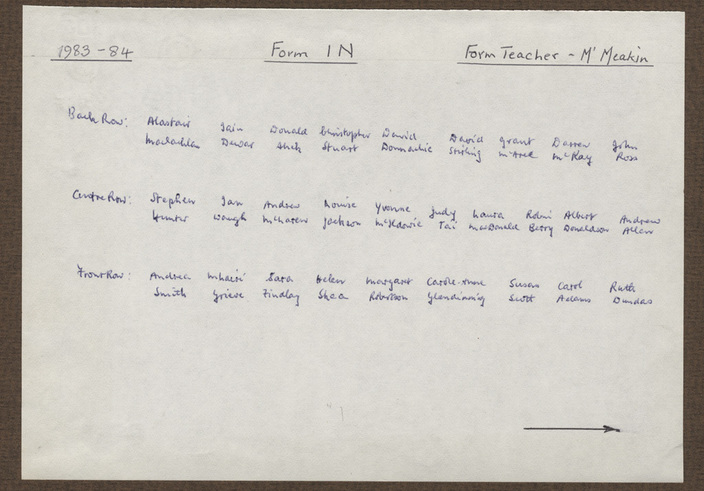 1983-84 Form 1N Form Teacher - Mr Meakin
Back Row: Alastair Iain Donald Christopher David David Grant Darren John
Maclachlan Dewar Stuart Donnachie Stirling McKay Ross
Centre Row: Stephen Ian Andrew Louise Yvonne Judy Laura Robin Albert Andrew
Hunter Waugh McLaren Jackson Tai MacDonald Berry Donaldson Allan
Front Row: Andrea Mhairi Sara Helen Margaret Carole-Anne Susan Carol Ruth
Smith Grieve Findlay Shea Robertson Glendinning Scott Adams Dundas